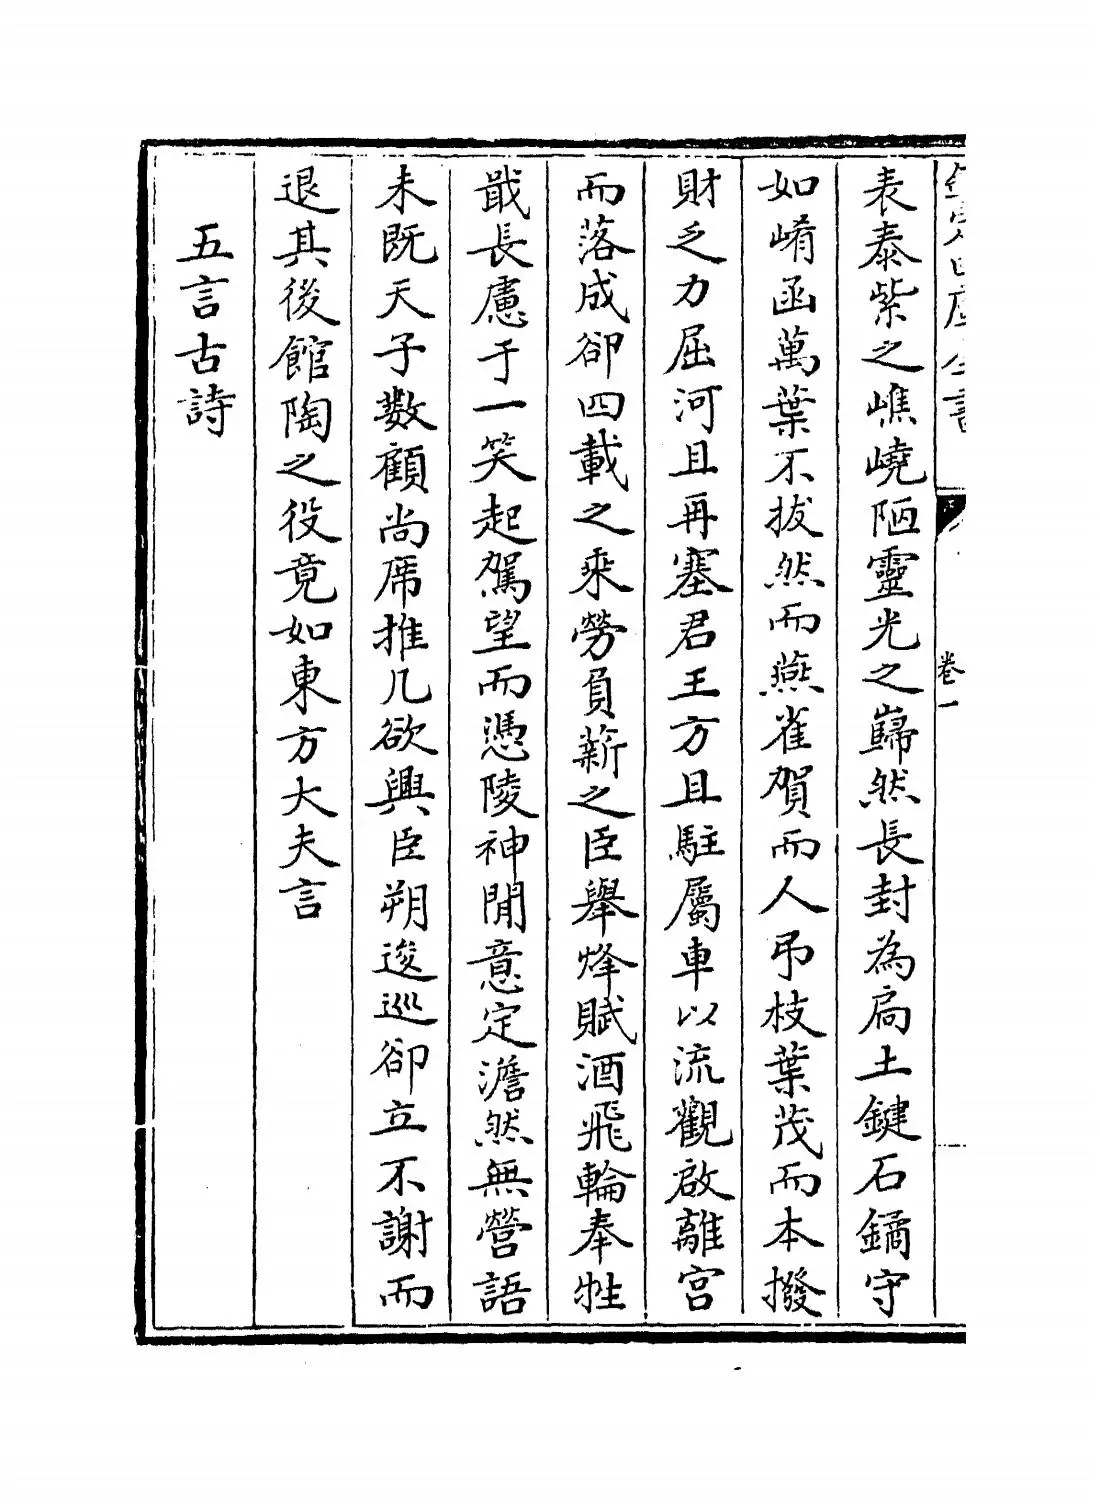 欽定四庫全書
卷一
表泰紫之嶕嶢陋靈光之巋然長封為扃土鍵石鐍守
如崤函萬葉不拔然而燕雀賀而人弔枝葉茂而本撥
財乏力屈河且再塞君王方且駐屬車以流觀啟離宮
而落成卻四載之乘勞負薪之臣舉烽賦酒飛輪奉牲
戢長慮于一笑起駕望而憑陵神閒意定澹然無營語
未既天子數顧尚席推几欲興臣朔逡巡卻立不謝而
退其後館陶之役竟如東方大夫言
五言古詩